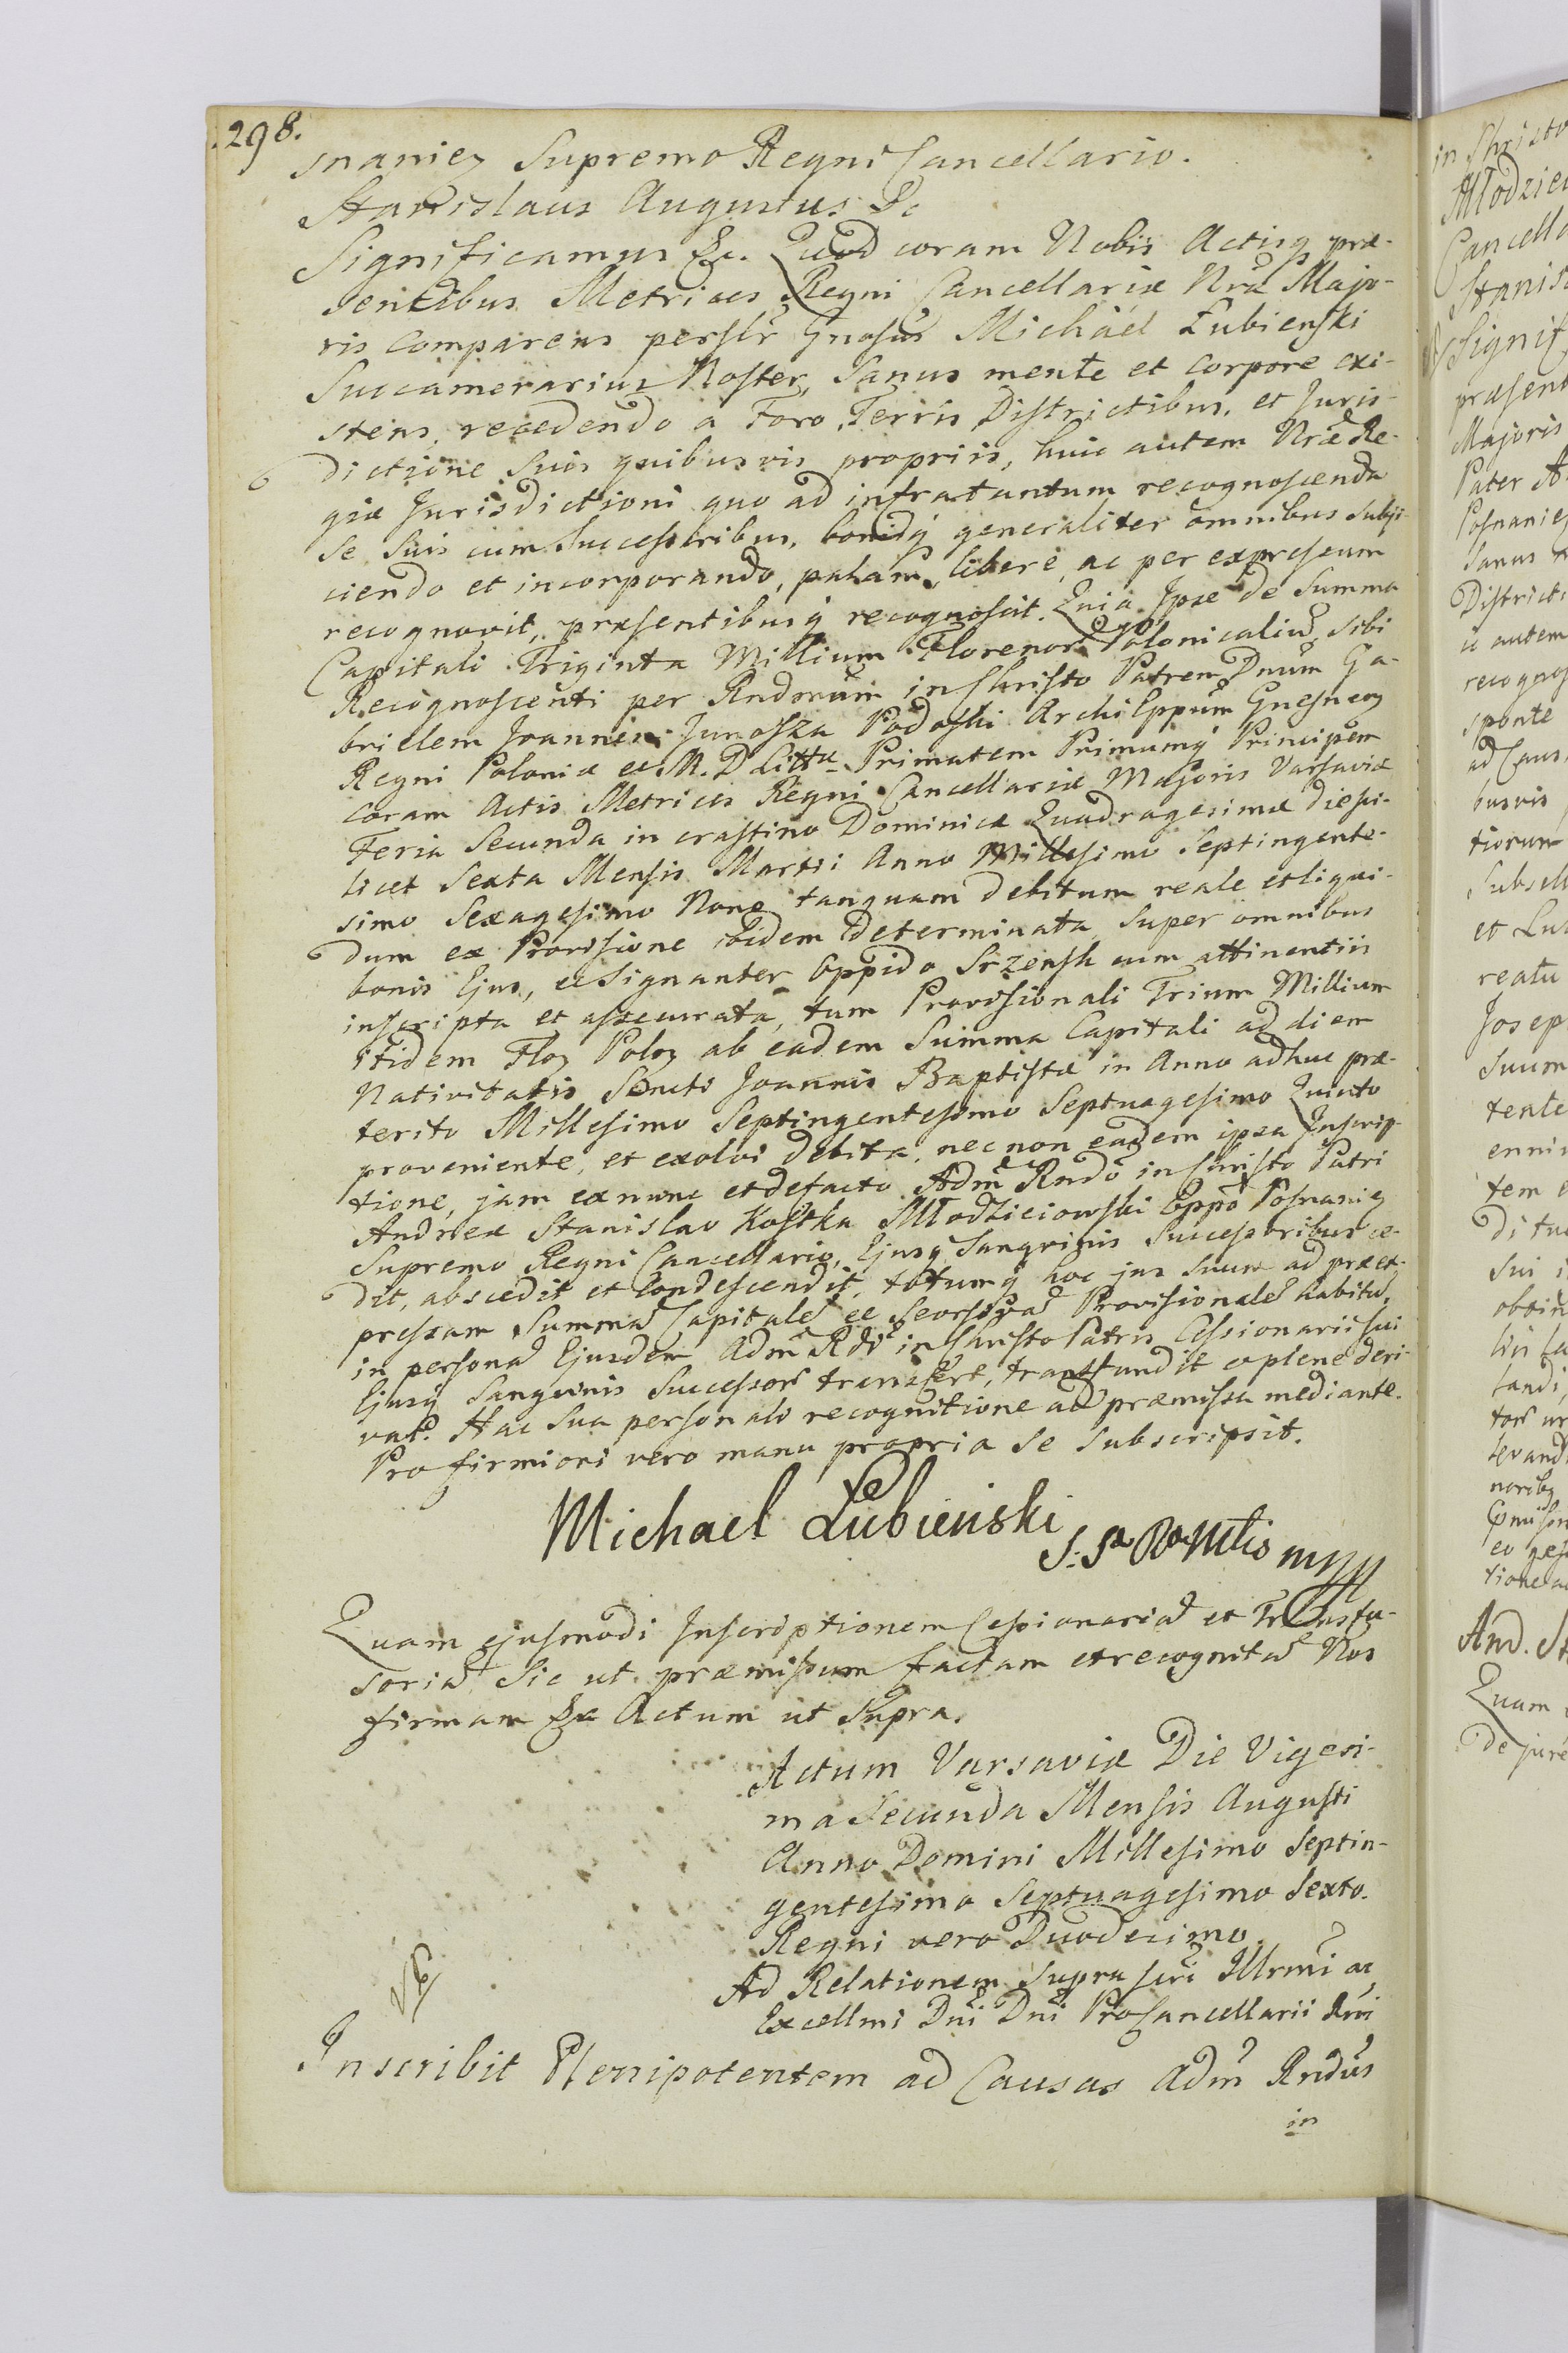 298.
snanien Supremo Regni Cancellario.
Stanislaus Augustus &c
Significamus &c. Quod coram Nobis Actisq præ-
sentibus Metrices Regni Cancellariæ Nræ Majo-
ris Comparens perslr Gnosus Michael Łubienski
Succamerarius Noster, Sanus mente et corpore exi-
stens, recedendo a Foro, Terris, Districtibus, et Juris-
dictione suis quibusvis propriis, huic autem Nræ Re-
giæ Jurisdictioni quo ad infra tantum recognoscenda
se suis cum Successoribus, bonisq generaliter omnibus subji-
ciendo et incorporando, palam, libere, ac per expressum
recognovit, præsentibusq recognoscit. Quia Ipse de Summa
Capitali Triginta Millium Florenor Polonicaliu, sibi
Recognoscenti per Rndmum in Christo Patrem Dnum Ga-
brielem Joannem Junosza Podoski Archi Eppum Gnesnen
Regni Poloniæ et M. D Littæ Primatem Primumq Principem
Coram Actis Metrices Regni Cancellariæ Majoris Varsaviæ
Feria Secunda in crastino Dominicæ Quadragesimæ die sci-
licet Sexta Mensis Martii Anno Millesimo Septingente-
simo Sexagesimo Nono tanquam debitum reale et liqui-
dum ex Provisione ibidem determinata, super omnibus
bonis Ejus, et Signanter Oppido Srzensk cum attinentiis
inscripta et assecurata, tum Provisionali Trium Millium
itidem Flon Polon ab eadem Summa Capitali ad diem
Nativitatis Sancti Joannis Baptistæ in Anno adhuc præ-
terito Millesimo Septingentesimo Septuagesimo Quinto
proveniente, et exolvi debita, nec non eadem ipsa Inscrip-
tione, jam ex nunc et de facto Adm Rndo in Christo Patri
Andreæ Stanislao Kostka Młodzieiowski Eppo Posnanien
Supremo Regni Cancellario, Ejusq Sangvinis Successoribus ce-
dit, abscedit et condescendit, totumq hoc jus suum ad præex-
pressam Summa Capitale et Provisionale habitu,
in persona Ejusdem Adm Rdi in Christo Patris Cessionarii sui
Ejusq Sangvinis Successor transfert, transfundit et plene deri-
vat. Hac Sua personali recognitione ad præmissa mediante.
Pro firmiori vero manu propria se subscripsit.
Michael Łubieński
S. mpp
Quam ejusmodi Inscriptionem Cessionaria et Transfu-
soria Sic ut præmissum factam et recognita Nos
firmam &c Actum ut Supra.
Actum Varsaviæ Die Vigesi-
ma Secunda Mensis Augusti
Anno Domini Millesimo Septin-
gentesimo Septuagesimo Sexto.
Regni vero Duodecimo
Ad Relationem Supra scri Illrmi ac
Excellmi Dni Dni ProCancellarii Rni
Inscribit Plenipotentem ad Causas Adm Rndus
in
in Christo
Młodziei
Cancella
Stanis
Signif
præsent
Majoris
Pater A
Posnanien
Sanus
Districti
autem
recognos
sponte
ad Caus
busvis
tiorum
Subsell
et Lu
reatu
Josep
Suum
tente
enni
tem
di tu
sui
obtin
landi
levand
tione
And. St
Quam
De jure